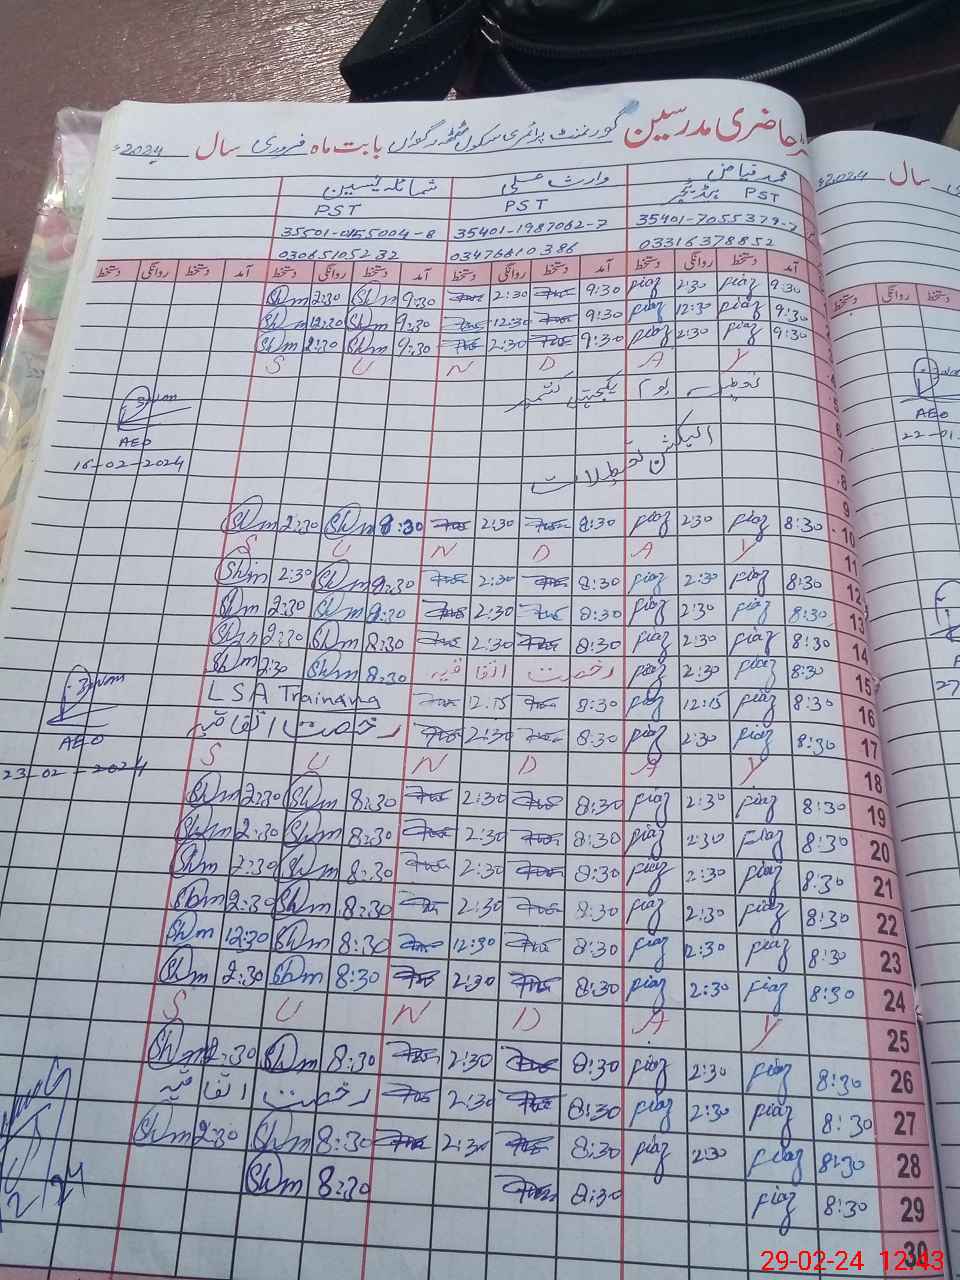 حاضری مدرسین گورنمنٹ پرائمری سکول بابت ماہ فروری سال 2024ء
محمد فیاض وارث علی شمائلہ یٰسین
PST ہیڈ ٹیچر PST PST
35401-1987062-7
03316378852 03476610386 03065105232
آمد دستخط روانگی دستخط آمد دستخط روانگی دستخط آمد دستخط روانگی دستخط آمد دستخط روانگی دستخط
9:30 fiaz 2:30 fiaz 9:30 2:30 9:30 Shm 2:30 Shm
9:30 fiaz 12:30 fiaz 9:30 12:30 9:30 Shm 12:30 Shm
9:30 fiaz 2:30 fiaz 9:30 2:30 9:30 Shm 2:30 Shm
S U N D A Y
تعطیل یوم یکجہتی کشمیر
6
AEO
7
16-02-2024
الیکشن تعطیلات
8
9
10 8:30 fiaz 2:30 fiaz 8:30 2:30 8:30 Shm 2:30 Shm
11 S U N D A Y
12 8:30 fiaz 2:30 fiaz 8:30 2:30 8:30 Shm 2:30 Shm
13 8:30 fiaz 2:30 fiaz 8:30 2:30 8:30 Shm 2:30 Shm
14 8:30 fiaz 2:30 fiaz 8:30 2:30 8:30 Shm 2:30 Shm
15 8:30 fiaz 2:30 fiaz رخصت اتفاقیہ 8:30 Shm 2:30 Shm
16 8:30 fiaz 12:15 fiaz 8:30 12:15 LSA Trainang
17 8:30 fiaz 2:30 fiaz 8:30 2:30 رخصت اتفاقیہ
AEO
18 S U N D A Y
23-02-2024
19 8:30 fiaz 2:30 fiaz 8:30 2:30 8:30 Shm 2:30 Shm
20 8:30 fiaz 2:30 fiaz 8:30 2:30 8:30 Shm 2:30 Shm
21 8:30 fiaz 2:30 fiaz 8:30 2:30 8:30 Shm 2:30 Shm
22 8:30 fiaz 2:30 fiaz 8:30 2:30 8:30 Shm 2:30 Shm
23 8:30 fiaz 12:30 fiaz 8:30 12:30 8:30 Shm 12:30 Shm
24 8:30 fiaz 2:30 fiaz 8:30 2:30 8:30 Shm 2:30 Shm
25 S U N D A Y
26 8:30 fiaz 2:30 fiaz 8:30 2:30 8:30 Shm 2:30 Shm
27 8:30 fiaz 2:30 fiaz 8:30 2:30 رخصت اتفاقیہ
28 8:30 fiaz 2:30 fiaz 8:30 2:30 8:30 Shm 2:30 Shm
29 8:30 fiaz 8:30 8:30 Shm
30
سال 2024ء
دستخط روانگی دستخط
AEO
29-02-24 12:43